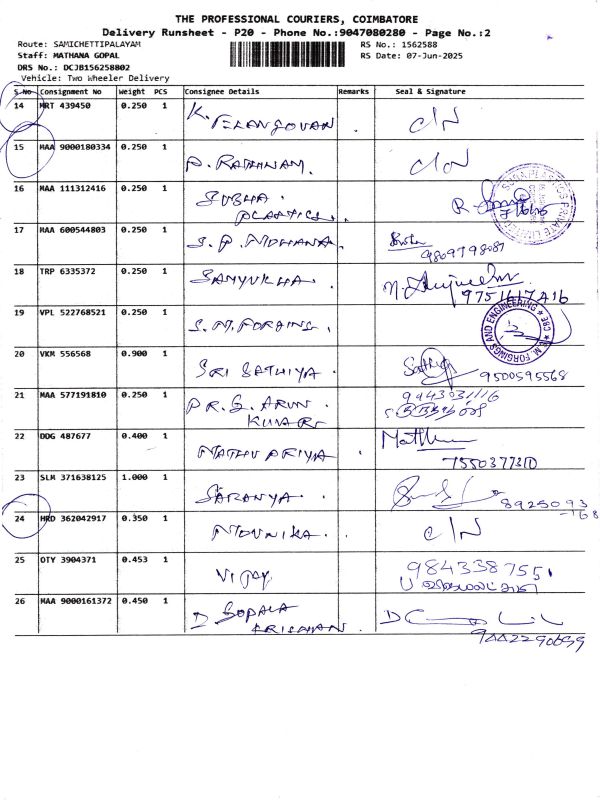 THE PROFESSIONAL COURIERS, COIMBATORE
Delivery Runsheet - P20 - Phone No.:9047080280 - Page No.:2
Route: SAMICHETTIPALAYAM RS No.: 1562588
Staff: MATHANA GOPAL RS Date: 07-Jun-2025
DRS No.: DCJB156258802
Vehicle: Two Wheeler Delivery
S.No Consignment No Weight PCS Consignee Details Remarks Seal & Signature
14 MRT 439450 0.250 1 K. ELANGOVAN C/N
15 MAA 9000180334 0.250 1 P. RATHINAM. C/N
16 MAA 111312416 0.250 1 SUBHA
PLASTICS.
17 MAA 600544803 0.250 1 S. P. MOHANA. 9809798087
18 TRP 6335372 0.250 1 SAMYUKHA. 9751617416
19 VPL 522768521 0.250 1 S. M. FORGING. S.M. FORGINGS AND ENGINEERING
20 VKM 556568 0.900 1 SRI SATHIYA. 9500595568
21 MAA 577191810 0.250 1 DR. G. ARUN
KUMAR
22 DDG 487677 0.400 1 MATHU PRIYA
23 SLM 371638125 1.000 1 SARANYA. 8925093
-168
24 HRD 362042917 0.350 1 MOUNIKA. C/N
25 OTY 3904371 0.453 1 VIJAY 9843387551
26 MAA 9000161372 0.450 1 D GOPALA
KRISHNAN.